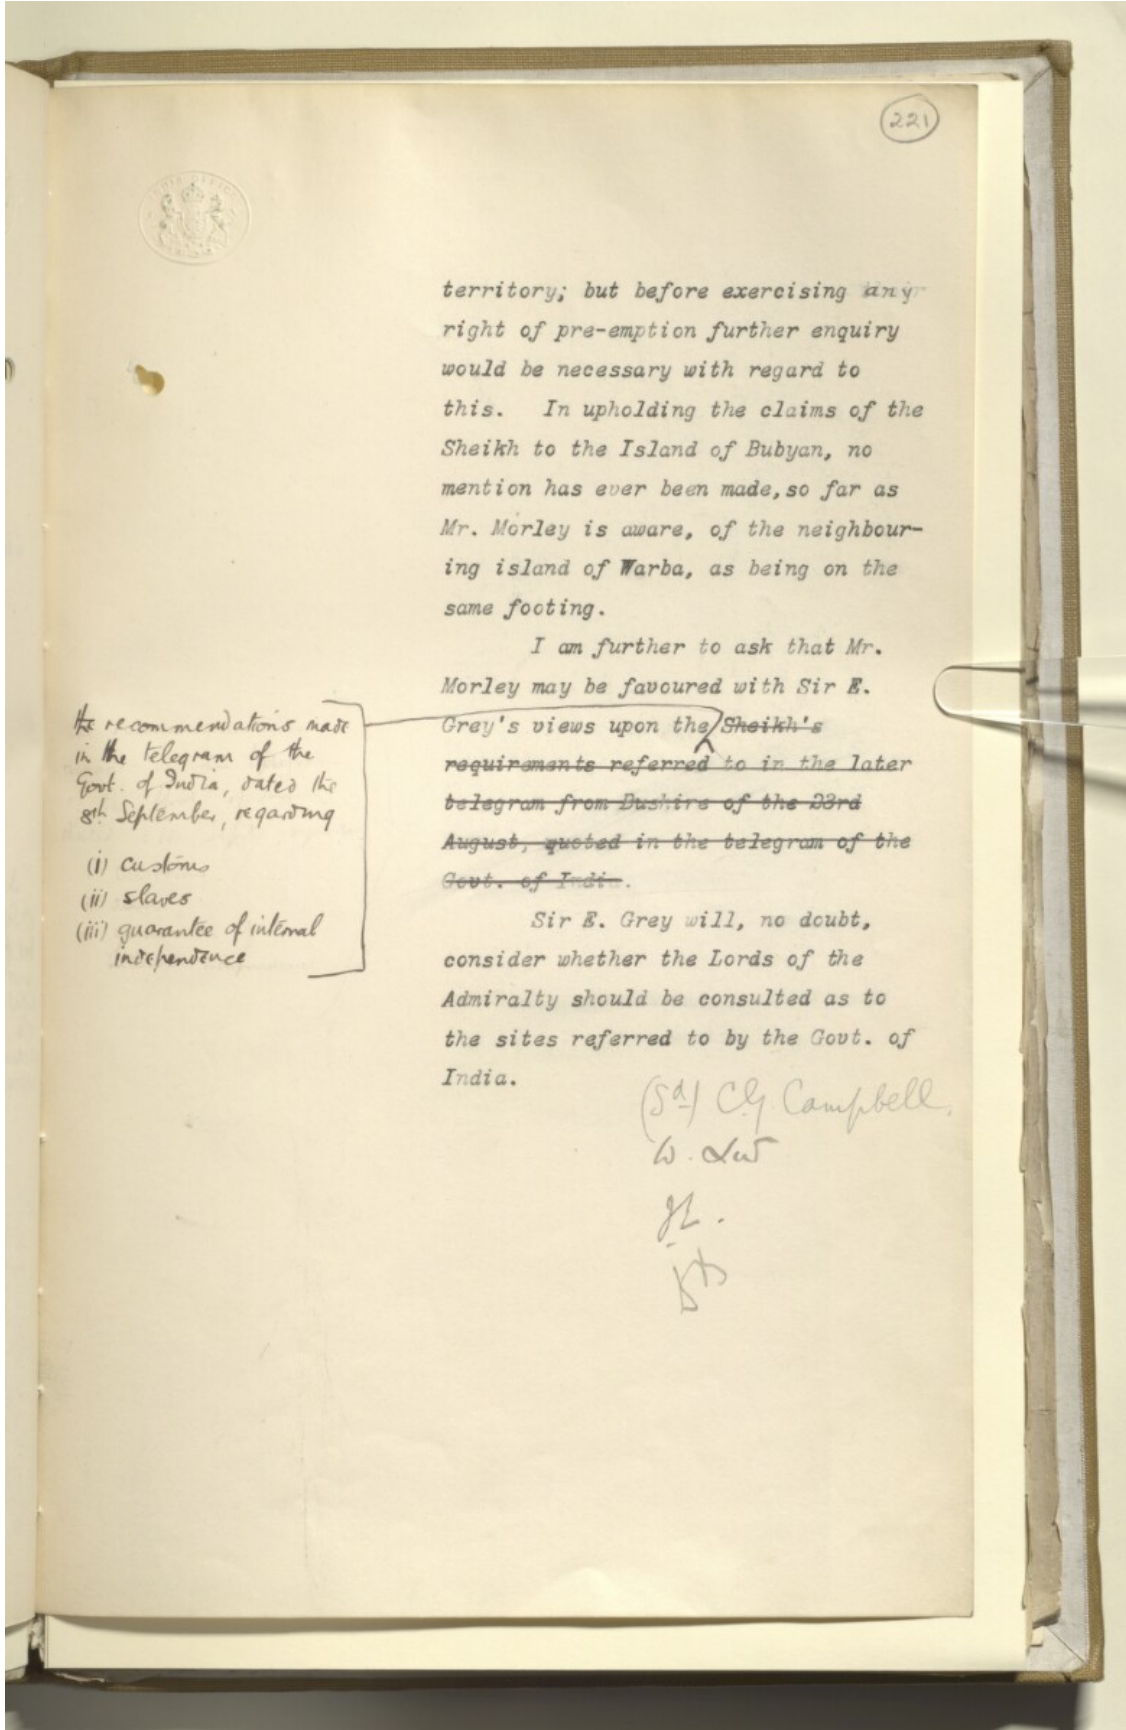 221
INDIA OFFICE
territory; but before exercising any
right of pre-emption further enquiry
would be necessary with regard to
this. In upholding the claims of the
Sheikh to the Island of Bubyan, no
mention has ever been made, so far as
Mr. Morley is aware, of the neighbour-
ing island of Warba, as being on the
same footing.
I am further to ask that Mr.
Morley may be favoured with Sir E.
Grey's views upon the Sheikh's
requirements referred to in the later
telegram from Bushire of the 23rd
August, quoted in the telegram of the
Govt. of India.
the recommendations made
in the telegram of the
Govt. of India, dated the
8th September, regarding
(i) customs
(ii) slaves
(iii) guarantee of internal
independence
Sir E. Grey will, no doubt,
consider whether the Lords of the
Admiralty should be consulted as to
the sites referred to by the Govt. of
India.
(Sd) C.G. Campbell.